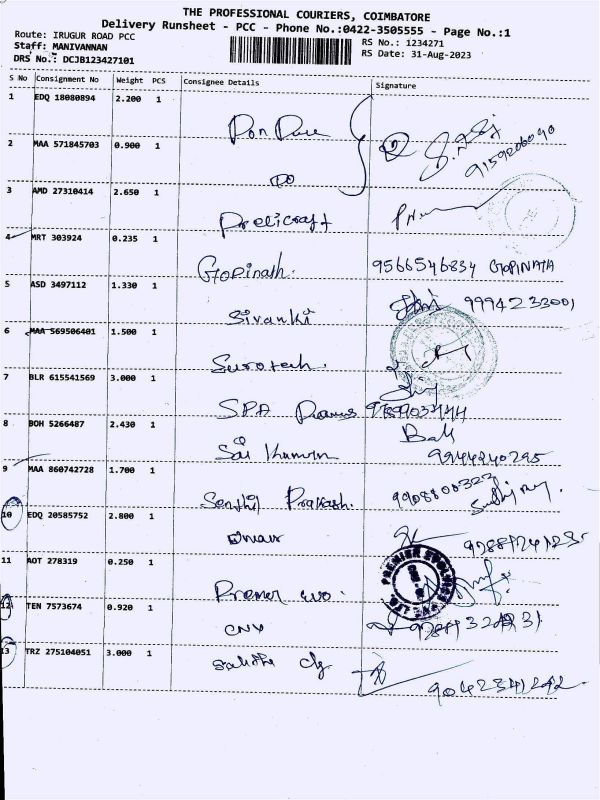 THE PROFESSIONAL COURIERS, COIMBATORE
Delivery Runsheet - PCC - Phone No.:0422-3505555 - Page No.:1
Route: IRUGUR ROAD PCC
Staff: MANIVANNAN
DRS No.: DCJB123427101
RS No.: 1234271
RS Date: 31-Aug-2023
S No Consignment No Weight PCS Consignee Details Signature
1 EDQ 18080894 2.200 1 Don
2 MAA 571845703 0.900 1 DO 9159206090
3 AMD 27310414 2.650 1 Prelicraft
4 MRT 303924 0.235 1 Gopinath. 9566546834 GOPINATH
5 ASD 3497112 1.330 1 Sivanki 9994233001
6 MAA 569506401 1.500 1 Surotech.
7 BLR 615541569 3.000 1 SPA
8 BOH 5266487 2.430 1 Sai Kumaran 9944240295
9 MAA 860742728 1.700 1 Senthil Prakash. 9908800323
10 EDQ 20585752 2.800 1
11 AOT 278319 0.250 1 Premer evo. PREMIER EVOLVICS
12 TEN 7573674 0.920 1 CNV
13 TRZ 275104051 3.000 1 9042341242